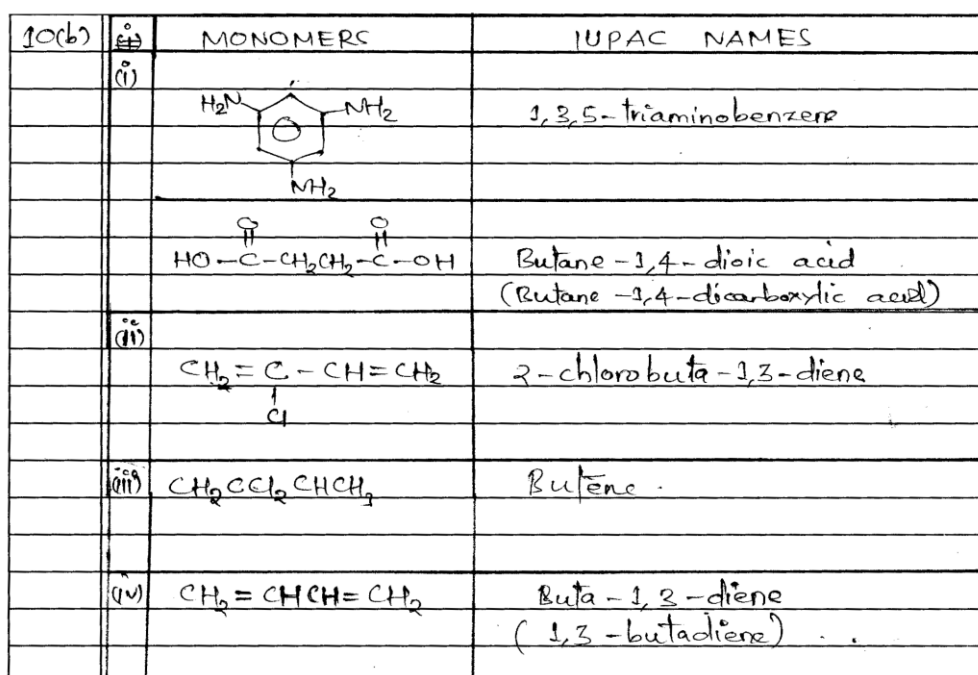 10(b) MONOMERS IUPAC NAMES
(i)
H2N NH2 1,3,5-triaminobenzene
NH2
O O
HO-C-CH2CH2-C-OH Butane-1,4-dioic acid
(Butane-1,4-dicarboxylic acid)
(ii)
CH2=C-CH=CH2 2-chlorobuta-1,3-diene
Cl
(iii) CH2CCl2CHCH3 Butene.
(iv) CH2=CHCH=CH2 Buta-1,3-diene
(1,3-butadiene)